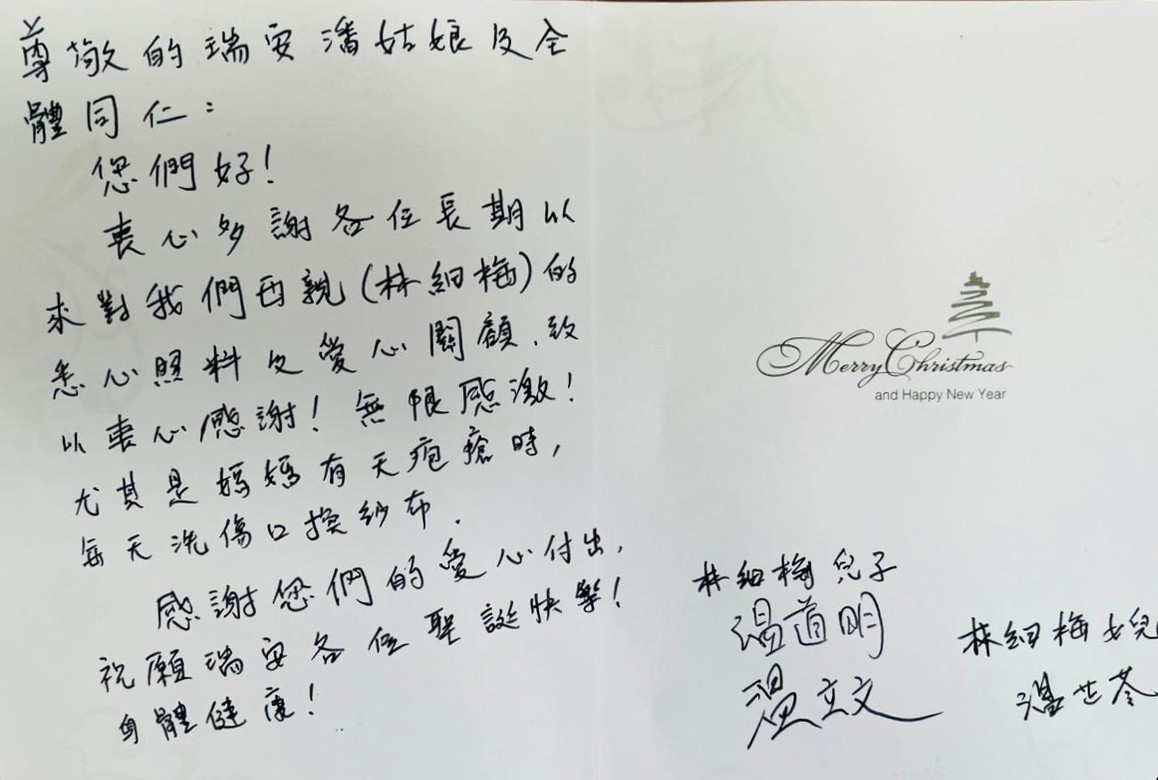 尊敬的瑞安潘姑娘及全
體同仁：
您們好！
衷心多謝各位長期以
來對我們母親(林細梅)的
悉心照料及愛心關顧，致
以衷心感謝！無限感激！
尤其是媽媽有天疱瘡時，
每天洗傷口換紗布．
感謝您們的愛心付出，
祝願瑞安各位聖誕快樂！
身體健康！
Merry Christmas
and Happy New Year
林細梅兒子
溫道明
溫立文
林細梅女兒
溫芷苓